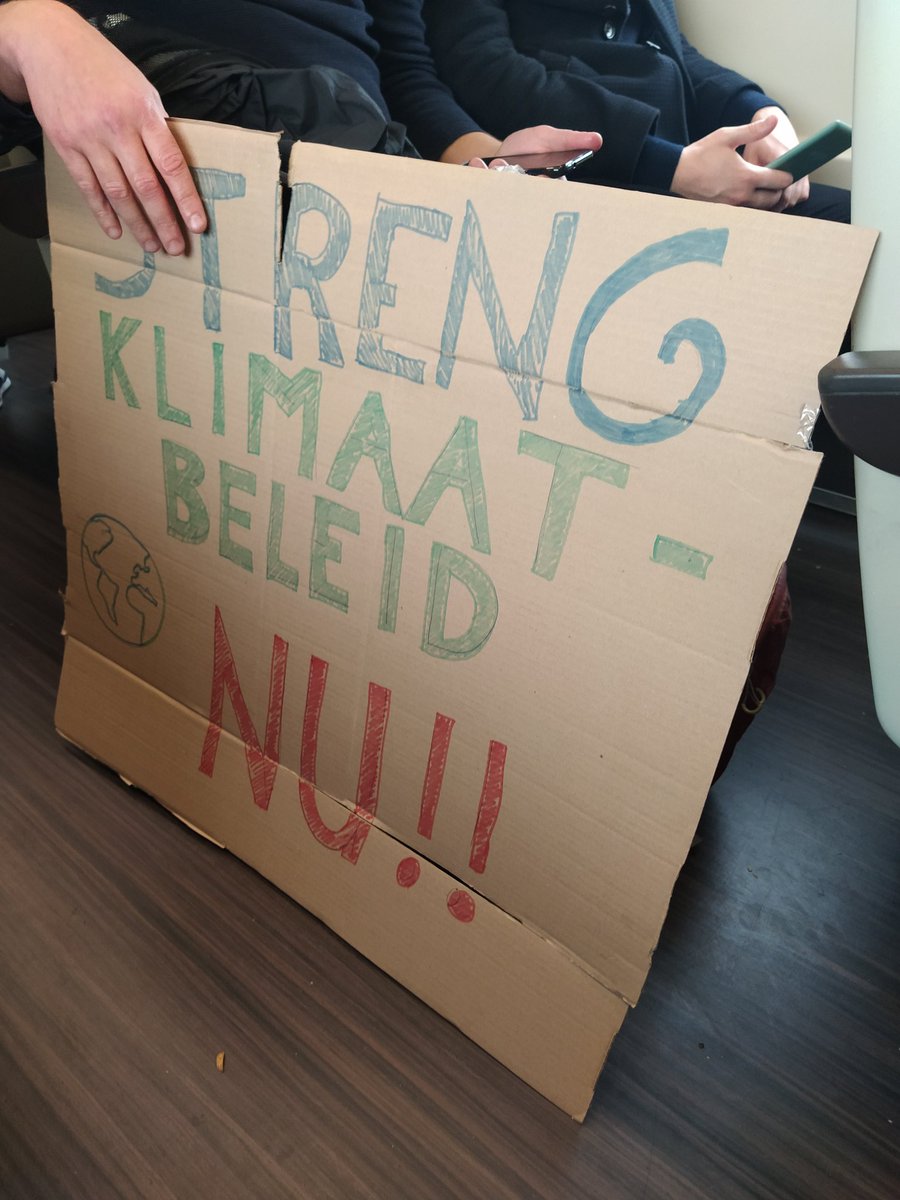 STRENG
KLIMAAT-
BELEID
NU!!